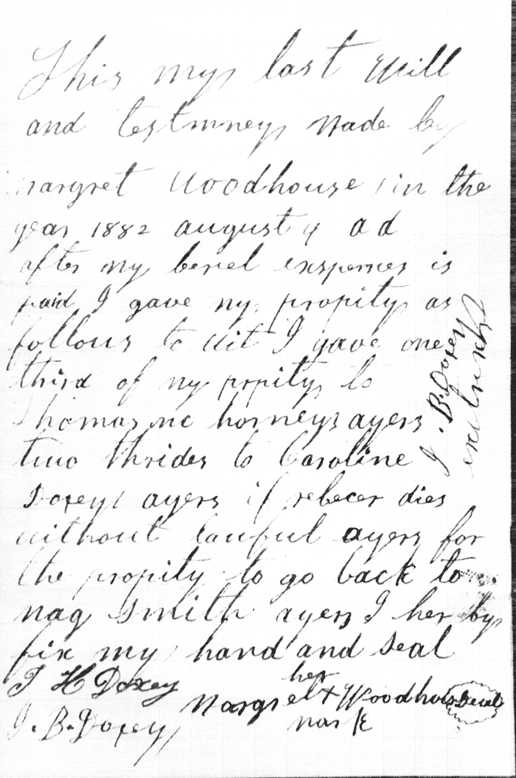 This my last will
and testmney made by
margret woodhouse in the
year 1882 august 4 ad
after my beriel exspences is
paid I gave my propity as
follous to wit I gave one
third of my prpity to
Thomas mc horneys ayers
two thrides to Caroline
Doxeys ayers if rebecer dies
without lawful ayers for
the propity to go back to
mag Smith ayers I her by
fix my hand and seal
T H Doxey
J. B. Doxey
her
Margret + Woodhous Seal
mark
J. B. Doxey